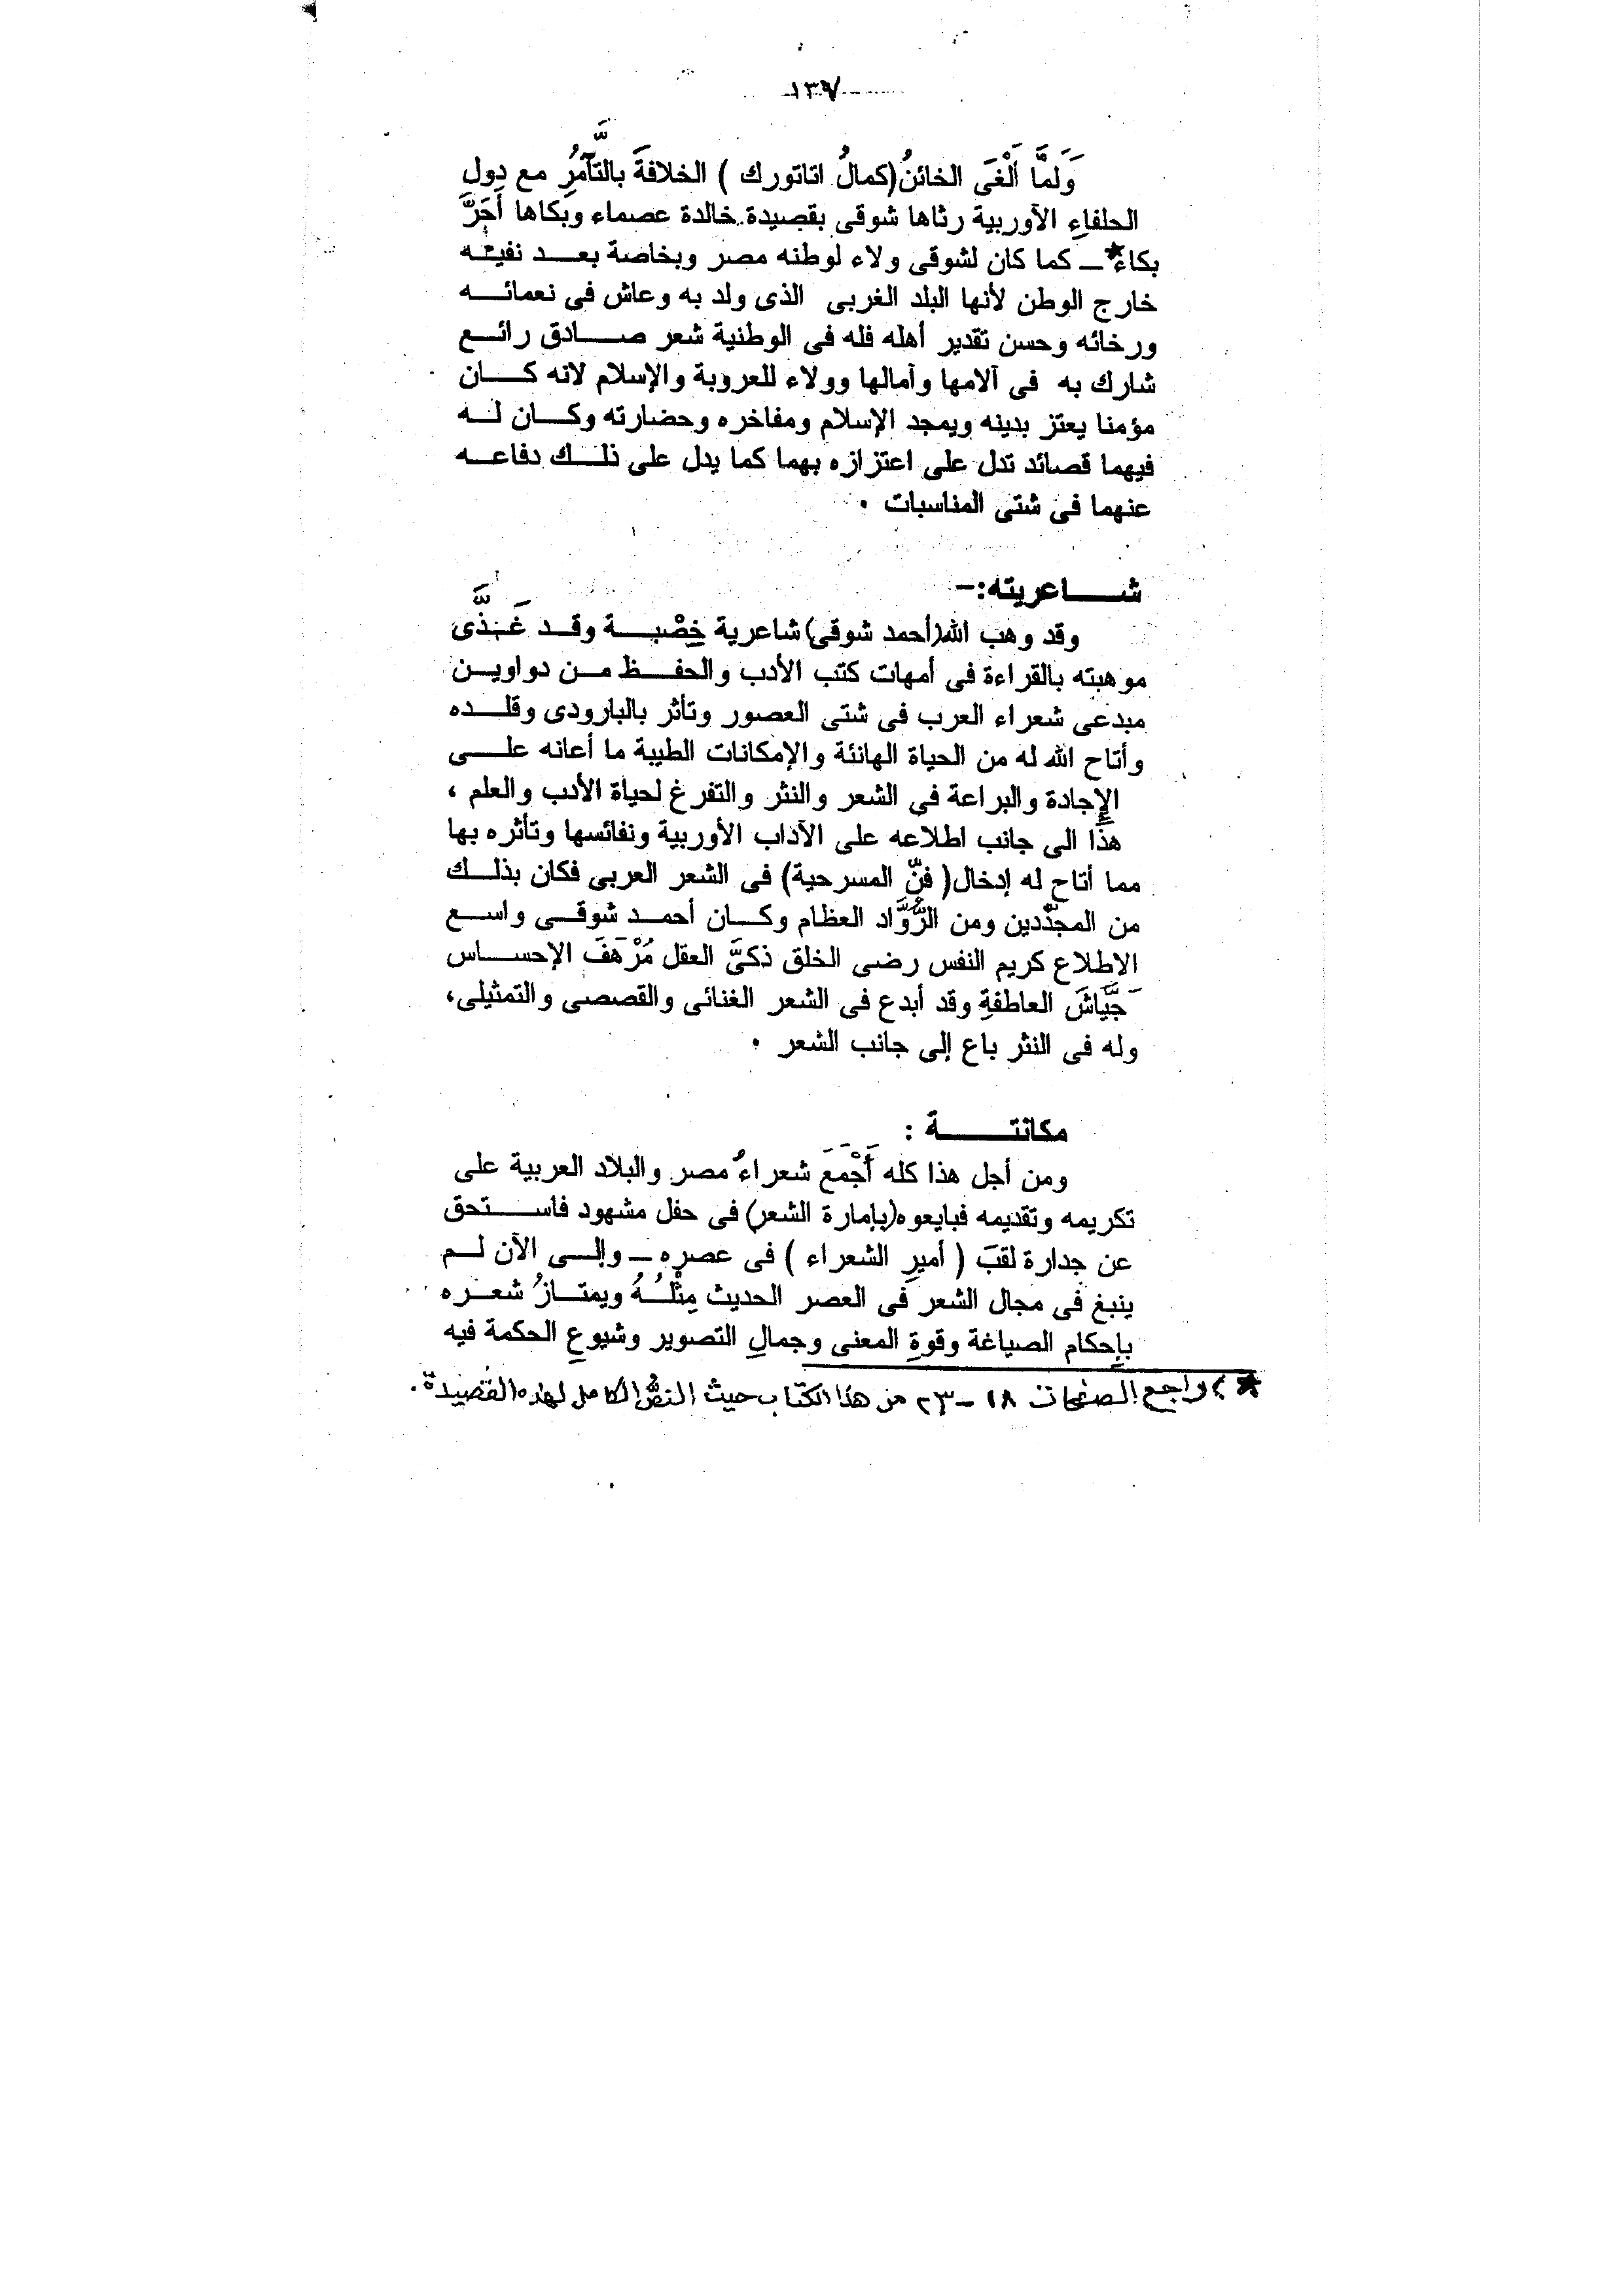 ١٣٧
وَلمَّا أَلْغَى الخائنُ (كمالُ اتاتورك ) الخلافةَ بالتَّآمُرِ مع دول
الحلفاءِ الآوربية رثاها شوقى بقصيدة خالدة عصماء وبكاها أَحَرَّ
بكاءٍ* ــ كما كان لشوقى ولاء لوطنه مصر وبخاصة بعد نفيه
خارج الوطن لأنها البلد الغربى الذى ولد به وعاش فى نعمائه
ورخائه وحسن تقدير أهله فله فى الوطنية شعر صادق رائع
شارك به فى آلامها وآمالها وولاء للعروبة والإسلام لانه كان
مؤمنا يعتز بدينه ويمجد الإسلام ومفاخره وحضارته وكان له
فيهما قصائد تدل على اعتزازه بهما كما يدل على ذلك دفاعه
عنهما فى شتى المناسبات .
شاعريته:ــ
وقد وهب الله (أحمد شوقى) شاعرية خِصْبة وقد غَذَّى
موهبته بالقراءة فى أمهات كتب الأدب والحفظ من دواوين
مبدعى شعراء العرب فى شتى العصور وتأثر بالبارودى وقلده
وأتاح الله له من الحياة الهانئة والإمكانات الطيبة ما أعانه على
الإجادة والبراعة فى الشعر والنثر والتفرغ لحياة الأدب والعلم ،
هذا الى جانب اطلاعه على الآداب الأوربية ونفائسها وتأثره بها
مما أتاح له إدخال ( فنِّ المسرحية) فى الشعر العربى فكان بذلك
من المجدِّدين ومن الرُّوَّاد العظام وكان أحمد شوقى واسع
الاطلاع كريم النفس رضى الخلق ذكىَّ العقل مُرْهَفَ الإحساس
جَيَّاشَ العاطفةِ وقد أبدع فى الشعر الغنائى والقصصى والتمثيلى،
وله فى النثر باع إلى جانب الشعر .
مكانتة :
ومن أجل هذا كله أَجْمَعَ شعراءُ مصر والبلاد العربية على
تكريمه وتقديمه فبايعوه (بإمارة الشعر) فى حفل مشهود فاستحق
عن جدارة لقبَ ( أميرِ الشعراء ) فى عصره ــ وإلى الآن لم
ينبغ فى مجال الشعر فى العصر الحديث مِثْلُهُ ويمتازُ شعره
بإحكام الصياغة وقوةِ المعنى وجمالِ التصوير وشيوعِ الحكمة فيه
* راجع الصفحات ١٨ - ٢٣ من هذا الكتاب حيث النصُّ الكامل لهذه القصيدة .